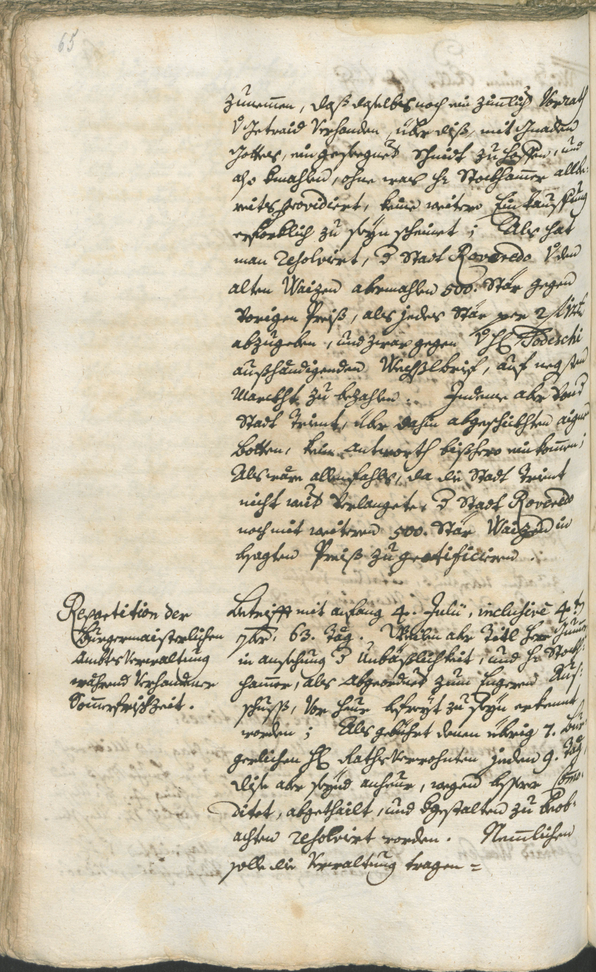 65
zunemen, daß daselbst noch ein zimlich Vorrath
V. Getraid verhanden, über diß, mit Gnaden
Gottes, ein gesegnet Schnidt zu hoffen, und
also bmahlen, ohne was H. Stockhamer allbe-
reits providiert, keine weitere Einkauffung
erforderlich zu seyn scheinet; Als hat
man resolvirt, d Stadt Roveredo V. dem
alten Waizen abermahlen 500. Stär gegen
vorigen Preiß, als jedes Stär per 2
abzugeben, und zwar gegen V. H. Todeschi
außhändigenden Wechßlbrief, auf negsten
Marckht zu bezahlen. Indeme aber von d
Stadt Trient, über dahin abgeschickhten aigne
Botten, kein Antworth bißhero einkommen;
Als wäre allenfahls, da die Stadt Trient
nicht verlangete, d Stadt Roveredo
noch mit weiteren 500. Stär Waizen in
besagten Preiß zu gratificieren.
Repartition der
Burgermaisterlichen
Ambts Verwaltung
während verhandener
Sommerfrischzeit.
Betrifft mit anfang 4. Julii, inclusivè 4.
7br. 63. Täg. Weilen aber Titl Herr
in ansehung d Unbäßlichkeit, und H. Stock-
hamer, als Abgeordnet zum Engeren Auß-
schuß, vor heur befreyt zu seyn erkennt
worden; Als gebührt denen übrig 7. bur
gerlichen H. Rathsverwohnten jedem 9. Täg,
dise aber seynd anheur, wegen besserer Como-
ditet, abgetheilt, und dgestalten zu beob-
achten resolvirt worden. Nemmlichen
solle die Verwaltung tragen =